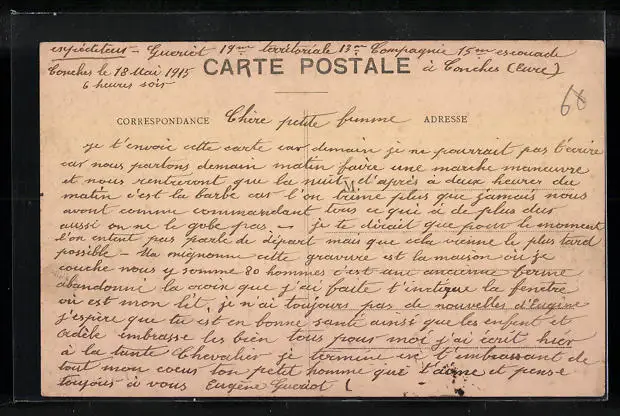 expéditeur - Gueriot 19me territoriale 13me Compagnie 15me escouade
Conches le 18 Mai 1915 CARTE POSTALE à Conches (Eure)
6 heures soir
CORRESPONDANCE Chère petite femme ADRESSE
je t'envoie cette carte car demain je ne pourrait pas t'écrire
car nous partons demain matin faire une marche manœuvre
et nous rentreront que la nuit d'après à deux heures du
matin c'est la barbe car l'on trime plus que jamais nous
avont comme commandant tous ce qui à de plus dur
aussi on ne le gobe pas - je te dirait que pour le moment
l'on entent pas parlé de départ mais que cela vienne le plus tard
possible - Ma mignonne cette gravure est la maison ou je
couche nous y somme 80 hommes c'est une ancienne ferme
abandonné la croix que j'ai faite t'indique la fenetre
ou est mon lit, je n'ai toujours pas de nouvelles d'Eugène
j'espère que tu est en bonne santé ainsi que les enfent et
Adèle embrasse les bien tous pour moi j'ai écrit hier
à la tante Chevalier je termine en t'embrassant de
tout mon coeur ton petit homme qui t'aime et pense
toujours à vous Eugène Gueriot